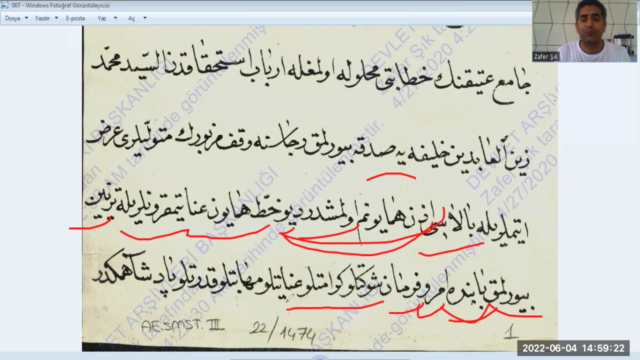 007 - Windows Fotoğraf Görüntüleyicisi
Dosya Yazdır E-posta Yaz Aç
جامع عتيقنك خطابتى محلوله اولمغله ارباب استحقاقدن السيد محمد
زين العابدين خليفه يه صدقه بيورلمق رجاسنه وقف مزبورك متوليلرى عرض
ايتملريله بالاسى اذن همايونم اولمشدر ديو خط همايون عنايتمقرونلريله تزيين
بيورلمق بابنده امر و فرمان شوكتلو كرامتلو عنايتلو مهابتلو قدرتلو پادشاهمكدر
AE.SMST. III 22/1474 1
Zafer Şık
2022-06-04 14:59:22